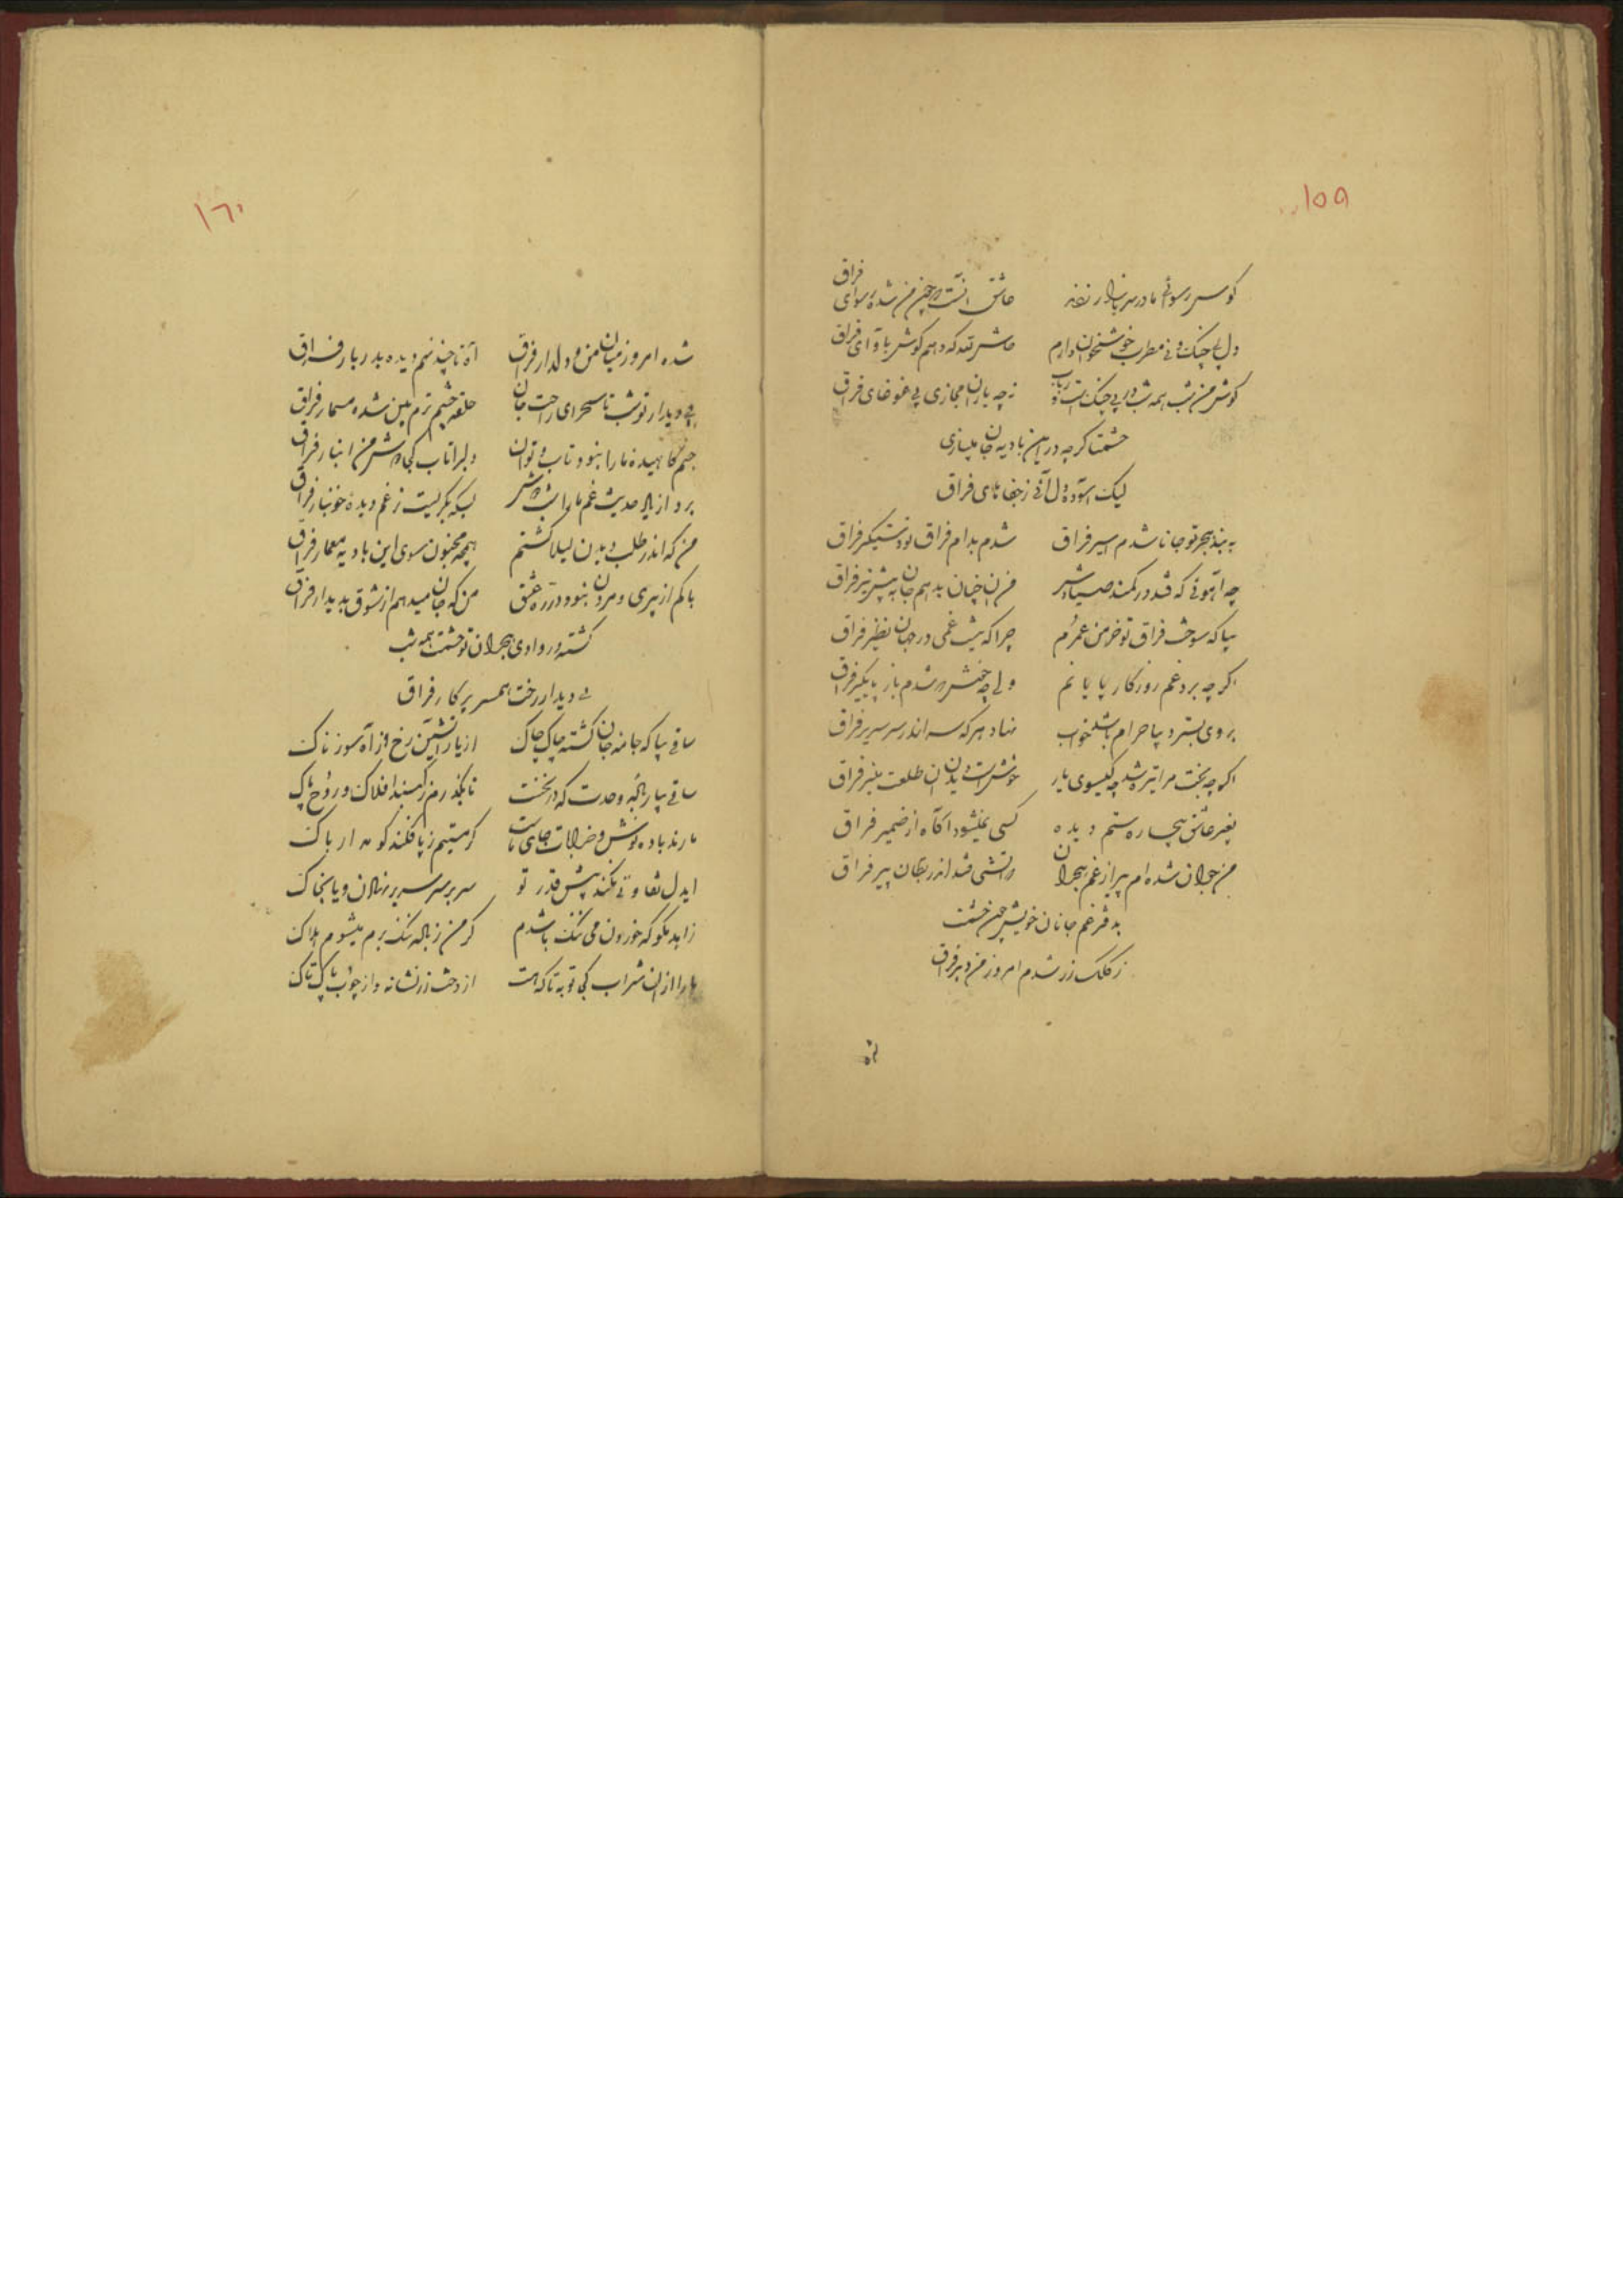 ١٥٩
کوس رسوائی ما در سر بازار زدند عاشق آنست که چون من شده رسوای فراق
دل بی چنک و نی مطرب خوشخوان دارم حاش لله که دهم کوش بآوای فراق
کوش من شب همه شب در پی چنکست و رباب نه چه یاران مجازی پی غوغای فراق
حشمتا کرچه در این بادیه جان میبازی
لیک آسوده دل آئی ز جفاهای فراق
به بند هجر تو جانا شدم اسیر فراق شدم بدام فراق تو دستیکیر فراق
چه آهوئی که فتد در کمند صیادش من آن چنان بدهم جان به پیش تیر فراق
بیا که سوخت فراق تو خرمن عمرم چرا که نیست غمی در جهان نظیر فراق
اکر چه برد غم روزکار پایانم ولی چه خضر شدم باز پایکیر فراق
بروی بستر دیبا حرام باشد خواب نهاد هر که سر اندر سر سریر فراق
اکر چه بخت مرا تیره شد چه کیسوی یار خوش است دیدن آن طلعت منیر فراق
بغیر عاشق بیچاره ستم دیده کسی نمیشود آکاه از ضمیر فراق
من جوان شده ام پیر از غم هجران در آتشی فتد اندر جهان پیر فراق
بدفتر غم جانان خویش چون حشمت
ز کلک زر شدم امروز من دبیر فراق
شده
١٦٠
شده امروز میان من و دلدار فراق آه تا چند نهم دیده بدربار فراق
بی دیدار تو شب تا سحر ای راحت جان حلقه چشم ترم بین شده مسمار فراق
جسم کاهیده ما را نبود تاب و توان دلبرا تاب کجا در من انبار فراق
برد از یاد حدیث غم ما را بسکه بکریست ز غم دیده خونبار فراق
من که اندر طلب دیدن لیلا کشتم همچه مجنون سوی این بادیه معمار فراق
باکم از پیری و مردن نبود در ره عشق من که جان میدهم از شوق بدیدار فراق
کشته در وادی هجران تو حشمت همه شب
بی دیدار رخت همسر پرکار فراق
ساقی بیا که جامه جان کشته چاک چاک از یار آتشین رخ و از آه سوزناک
ساقی بیار باده وحدت که در نخست تا بکذرم ز کنبد افلاک و روح پاک
ما رند باده نوش و خرابات جای ماست کر مستیم ز پا فکند کو مدار باک
ایدل تفاوتی نکند پیش قدر تو سر بر سر سریر نهادن و یا بخاک
زاهد مکو که خوردن می ننک باشدم کر من ز باده ننک برم میشوم هلاک
ما را از آن شراب کجا توبه تا که هست از دخت رز نشانه و از چوب پاک تاک